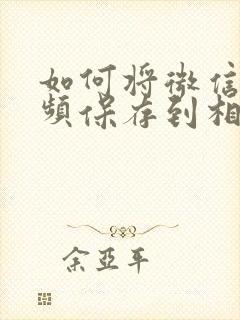 如何将微信
频保存到相
余亚平